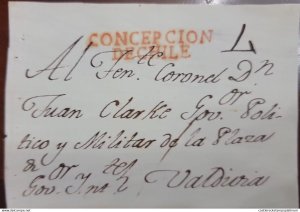 CONCEPCION
DE CHILE
Al Señ.^r Coronel D.^n
Juan Clarke Gov.^or Poli-
tico y Militar de la Plaza
Valdivia